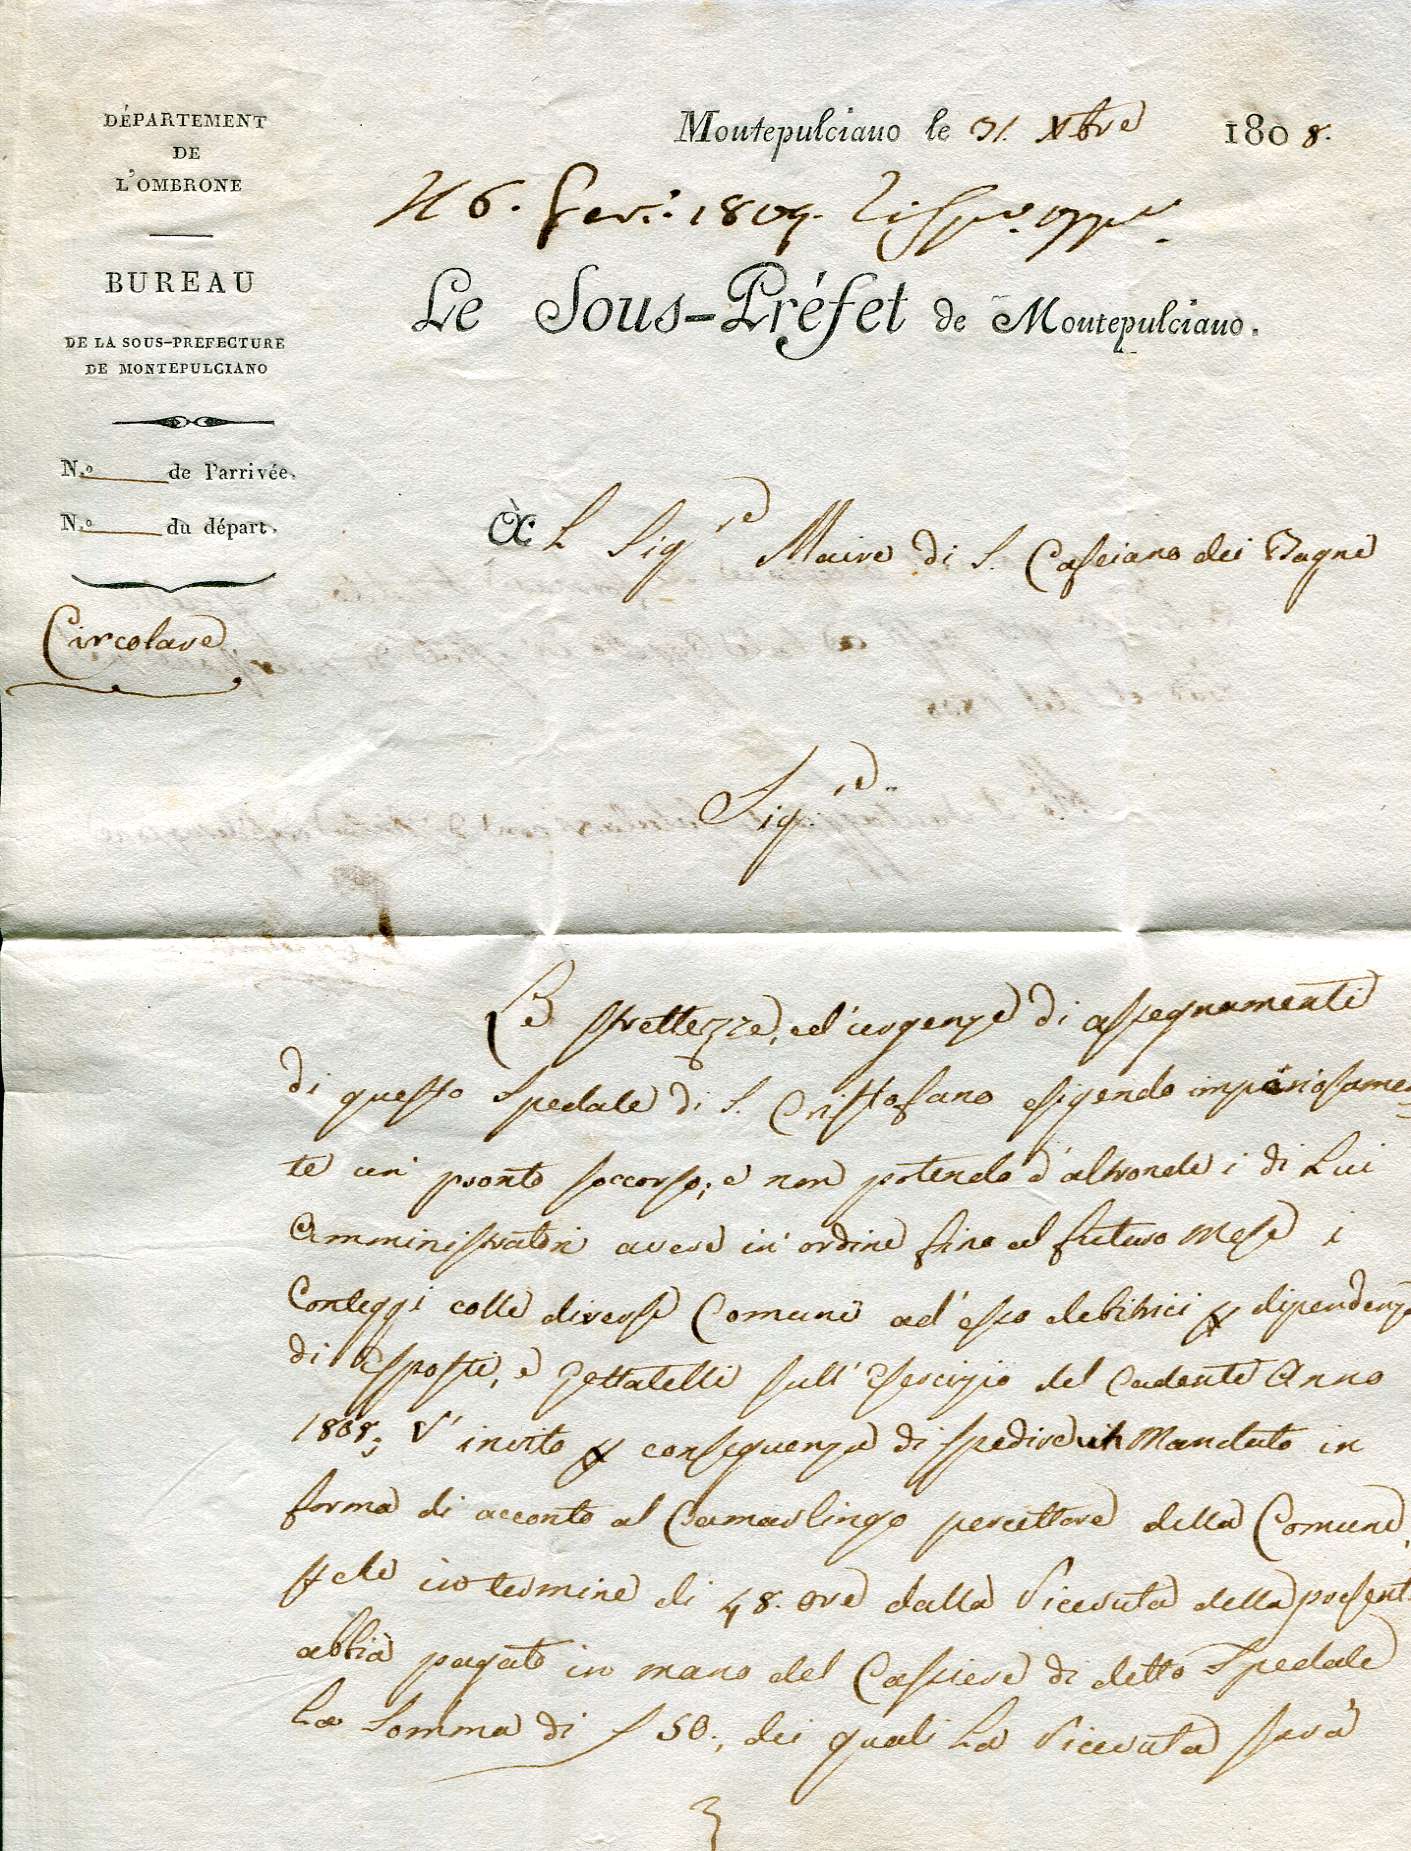 DÉPARTEMENT
DE
L'OMBRONE
BUREAU
DE LA SOUS-PREFECTURE
DE MONTEPULCIANO
N.o de l'arrivée.
N.o du départ.
Circolare
Montepulciano le 31. Xbre 1808.
6. 1809.
Le Sous-Préfet de Montepulciano.
À L Sigre Maire di S. Casciano dei Bagni
Sigre
Le strettezze, ed urgenze di assegnamenti
di questo Spedale di S. Cristofano esigendo imperiosamen
te un pronto soccorso; e non potendo d'altronde i di Lui
Amministratori avere in ordine fino al futuro Mese i
Conteggi colle diverse Comuni ad esso debitrici p dipendenza
di Esposti, e Gettatelli sull' Esercizio del Cadente Anno
1808; V' invito p conseguenza di spedire un Mandato in
forma di acconto al Camarlingo percettore della Comune,
pche in termine di 48. ore dalla ricevuta della present
abbia pagato in mano del Cassiere di detto Spedale
La Somma di f 50., dei quali La ricevuta sarà